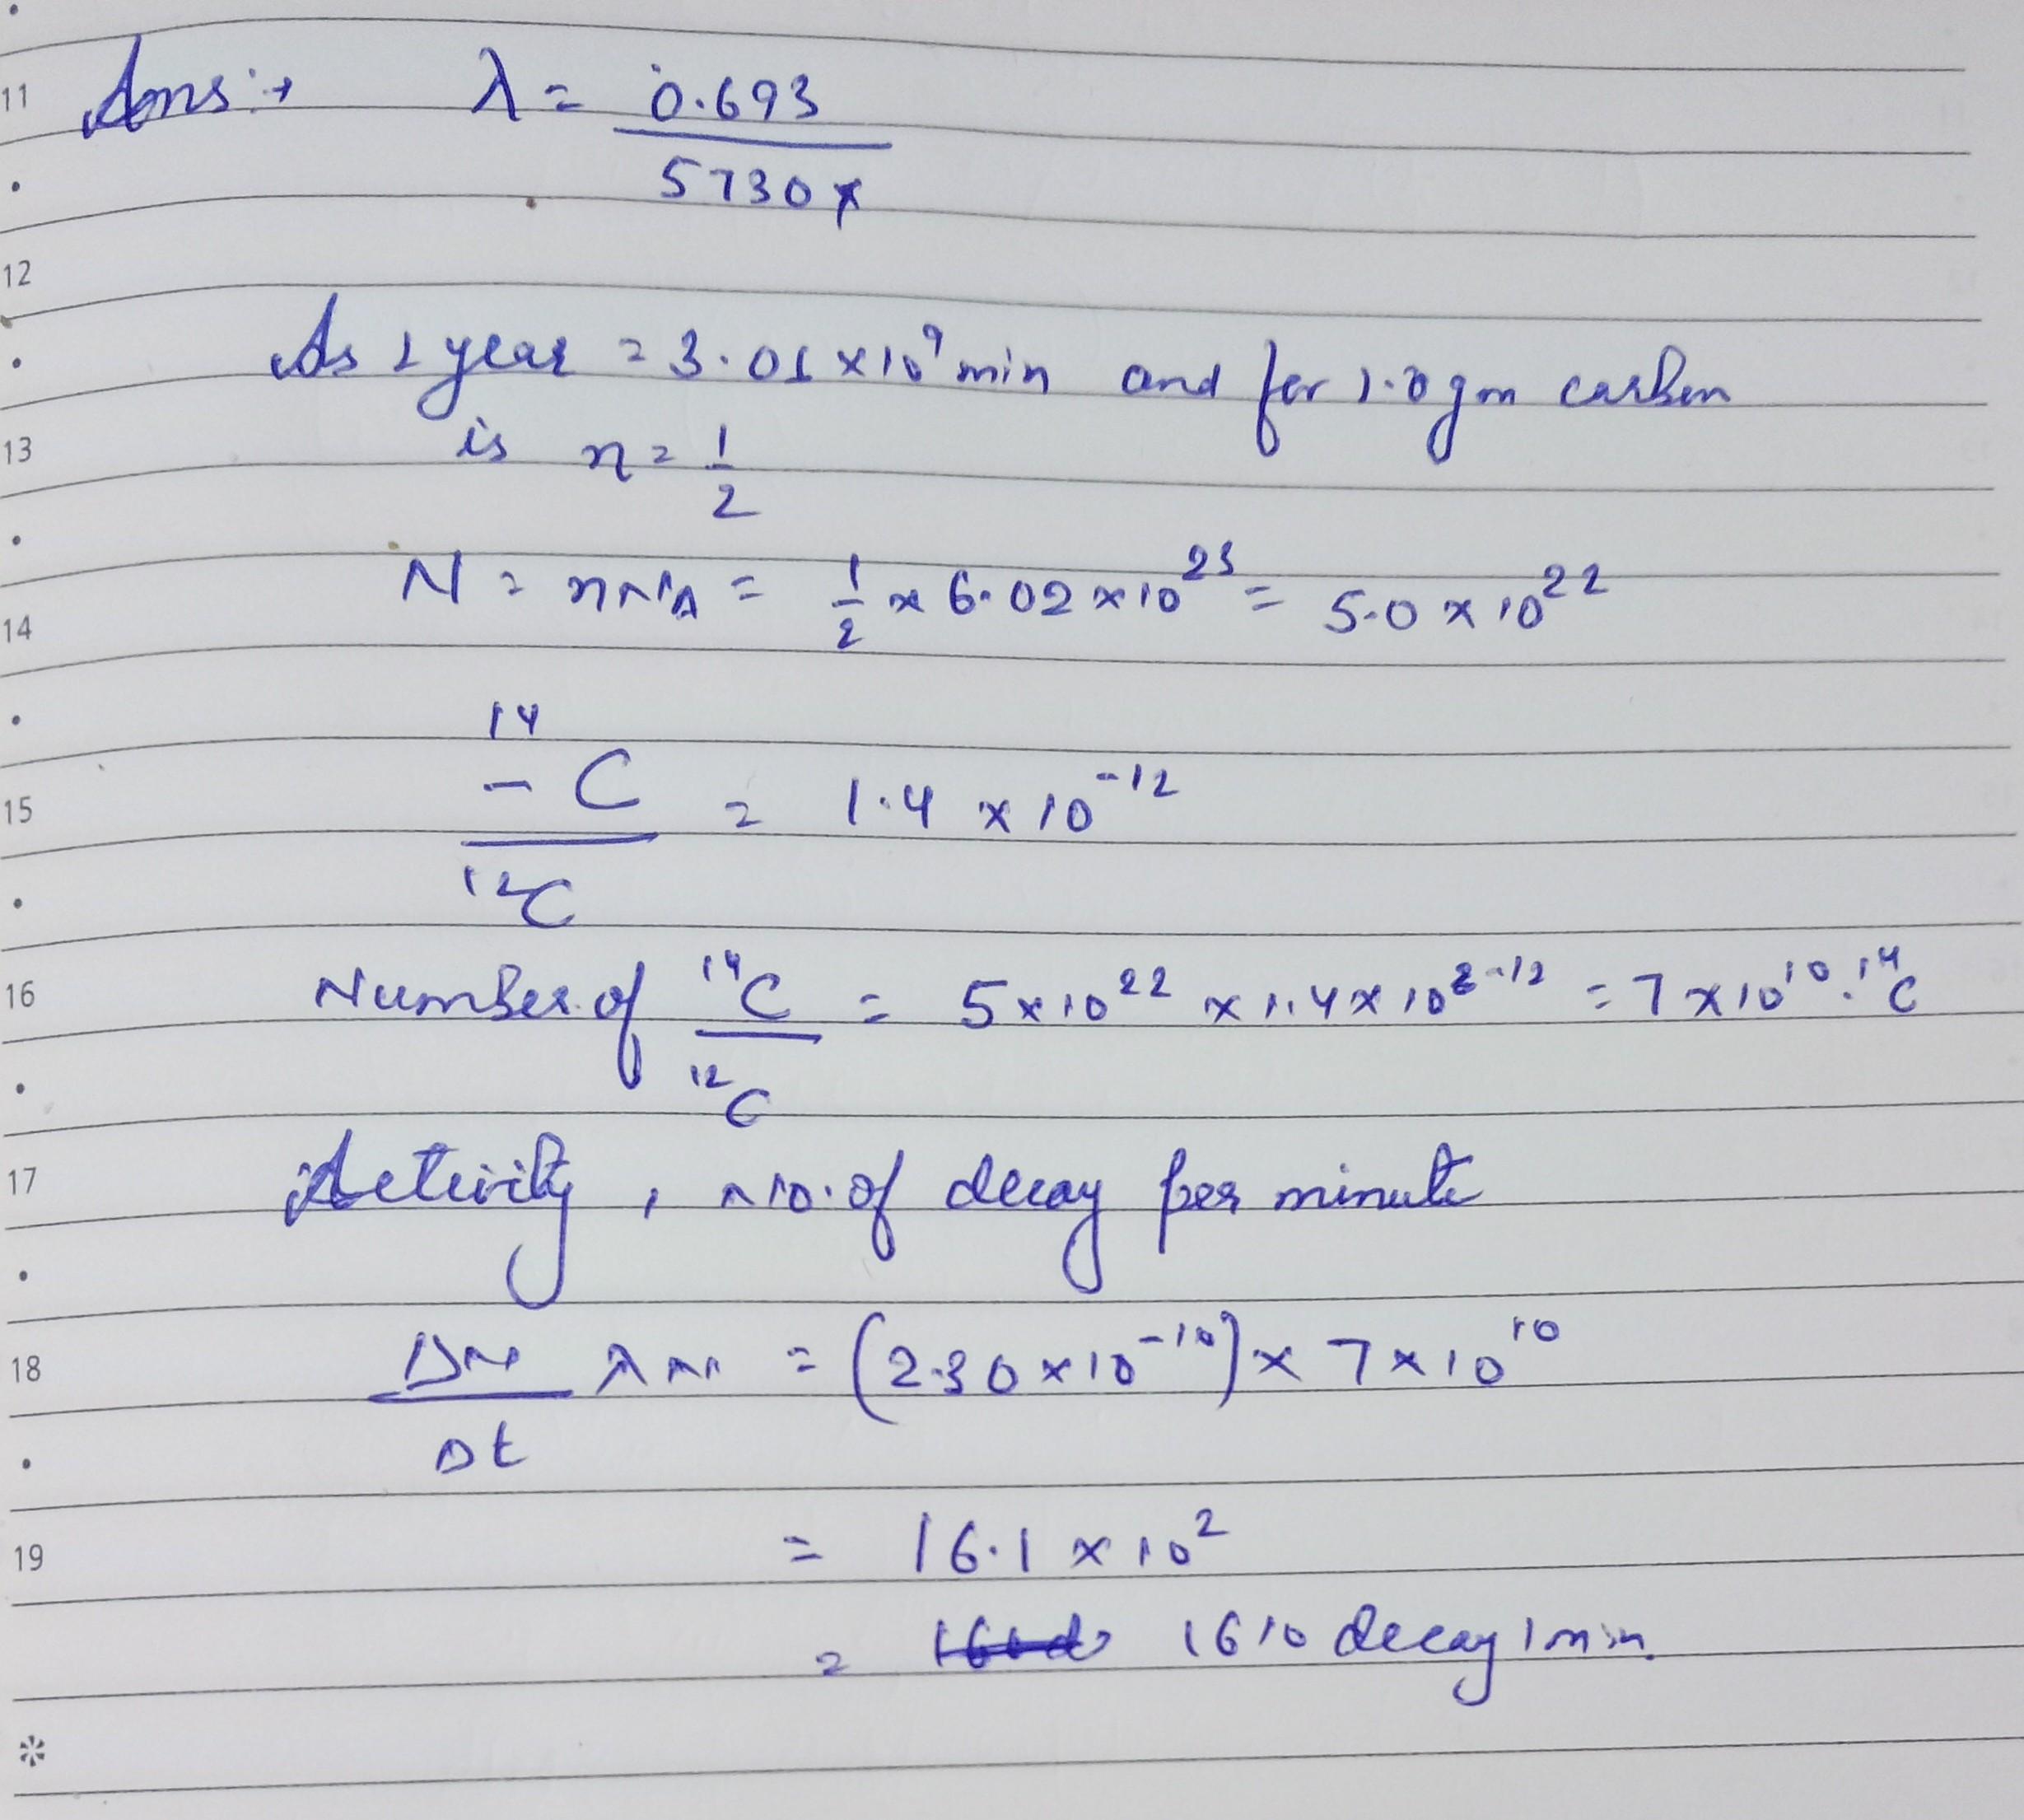 11 Ans:→ λ = 0.693 / 5730 x
12
As 1 year = 3.01 x 10⁹ min and for 1.0 gm carbon
13 is n = 1/2
14 N = nNA = 1/2 x 6.02 x 10²³ = 5.0 x 10²²
15 ¹⁴ - C / ¹²C = 1.4 x 10⁻¹²
16 Number of ¹⁴C / ¹²C = 5 x 10²² x 1.4 x 10⁻¹² = 7 x 10¹⁰ . ¹⁴C
17 Activity, no. of decay per minute
18 ΔN / Δt λN = (2.30 x 10⁻¹⁰) x 7 x 10¹⁰
19 = 16.1 x 10²
= 1610 decay/min.